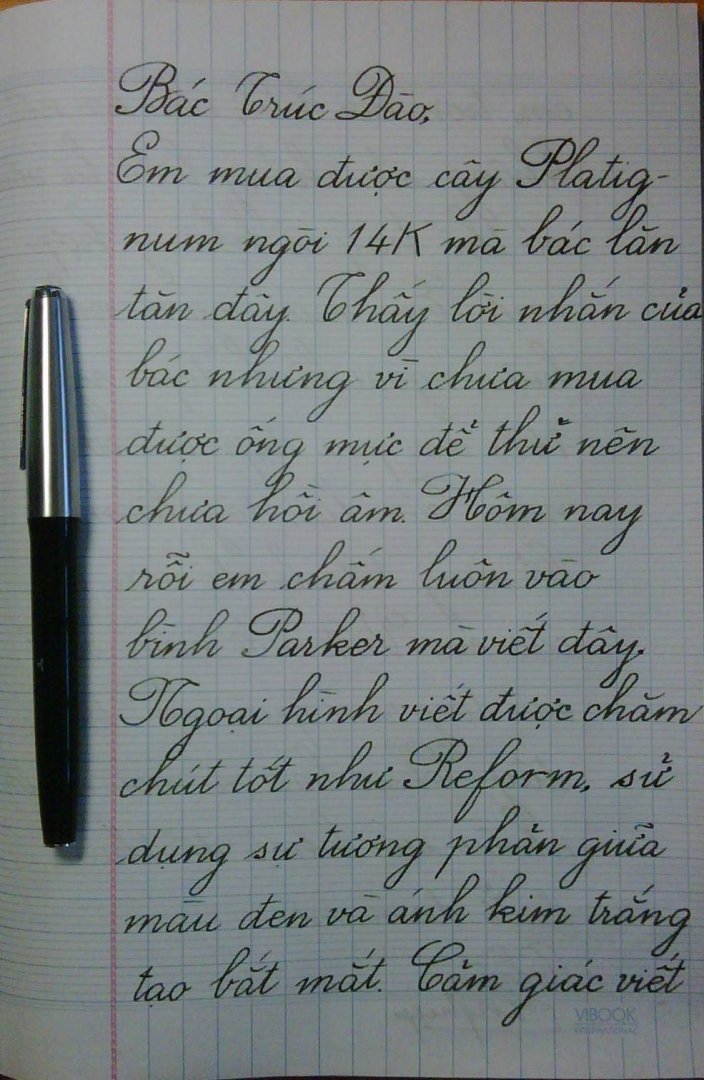 Bác Trúc Đào,
Em mua được cây Platig-
num ngòi 14K mà bác lăn
tăn đây. Thấy lời nhắn của
bác nhưng vì chưa mua
được ống mực để thử nên
chưa hồi âm. Hôm nay
rỗi em chấm luôn vào
bình Parker mà viết đây.
Ngoại hình viết được chăm
chút tốt như Reform, sử
dụng sự tương phản giữa
màu đen và ánh kim trắng
tạo bắt mắt. Cảm giác viết
VIBOOK
INTERNATIONAL